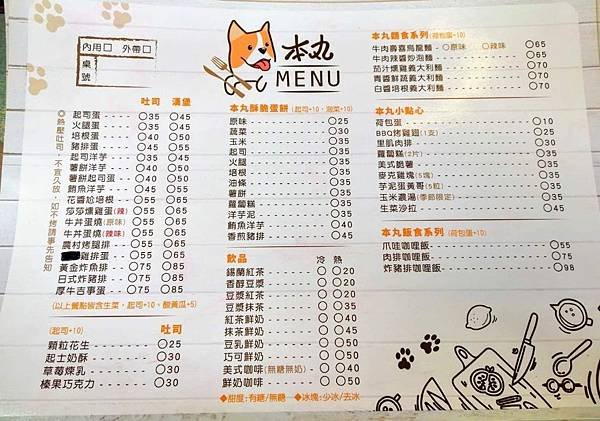 內用□ 外帶□
桌號
本丸
MENU
吐司 漢堡
◎熱壓吐司，不宜久放，如不烤請事先告知
起司蛋 ○35 ○45
火腿蛋 ○35 ○45
培根蛋 ○40 ○50
豬排蛋 ○40 ○50
起司洋芋 ○35 ○45
薯餅洋芋 ○40 ○50
薯餅起司蛋 ○40 ○50
鮪魚洋芋 ○35 ○45
花醬尬培根 ○35 ○45
莎莎燻雞蛋(辣) ○55 ○65
牛丼蛋燒(原味) ○55 ○65
牛丼蛋燒(辣味) ○55 ○65
農村烤腿排 ○55 ○65
雞排蛋 ○55 ○65
黃金炸魚排 ○55 ○65
日式炸豬排 ○55 ○65
厚牛吉事蛋 ○55 ○65
(以上餐點皆含生菜，起司+10、酸黃瓜+5)
(起司+10) 吐司
顆粒花生 ○25
起士奶酥 ○30
草莓煉乳 ○30
榛果巧克力 ○30
本丸酥脆蛋餅(起司+10，泡菜+10)
原味 ○25
蔬菜 ○30
玉米 ○35
起司 ○35
火腿 ○35
培根 ○35
油條 ○35
薯餅 ○35
蘿蔔糕 ○35
洋芋泥 ○35
鮪魚洋芋 ○40
香煎豬排 ○40
飲品 冷 熱
錫蘭紅茶 ○○20
香醇豆漿 ○○20
豆漿紅茶 ○○20
豆漿抹茶 ○○35
紅茶鮮奶 ○○40
抹茶鮮奶 ○○45
豆乳鮮奶 ○○50
巧可鮮奶 ○○50
美式咖啡(無糖無奶) ○○40
鮮奶咖啡 ○○60
◆甜度:有糖/無糖 ◆冰塊:少冰/去冰
本丸麵食系列(荷包蛋+10)
牛肉壽喜烏龍麵 ○原味 ○辣味 ○65
牛肉辣醬炒泡麵 ○65
茄汁燻雞義大利麵 ○70
青醬鮮蔬義大利麵 ○70
白醬培根義大利麵 ○70
本丸小點心
荷包蛋 ○10
BBQ烤雞翅(1支) ○25
里肌肉排 ○30
蘿蔔糕(2片) ○35
美式脆薯 ○35
麥克雞塊(5塊) ○35
芋泥蛋黃哥(5粒) ○35
玉米濃湯(季節限定) ○35
生菜沙拉 ○45
本丸飯食系列(荷包蛋+10)
爪哇咖哩飯 ○65
肉排咖哩飯 ○75
炸豬排咖哩飯 ○98